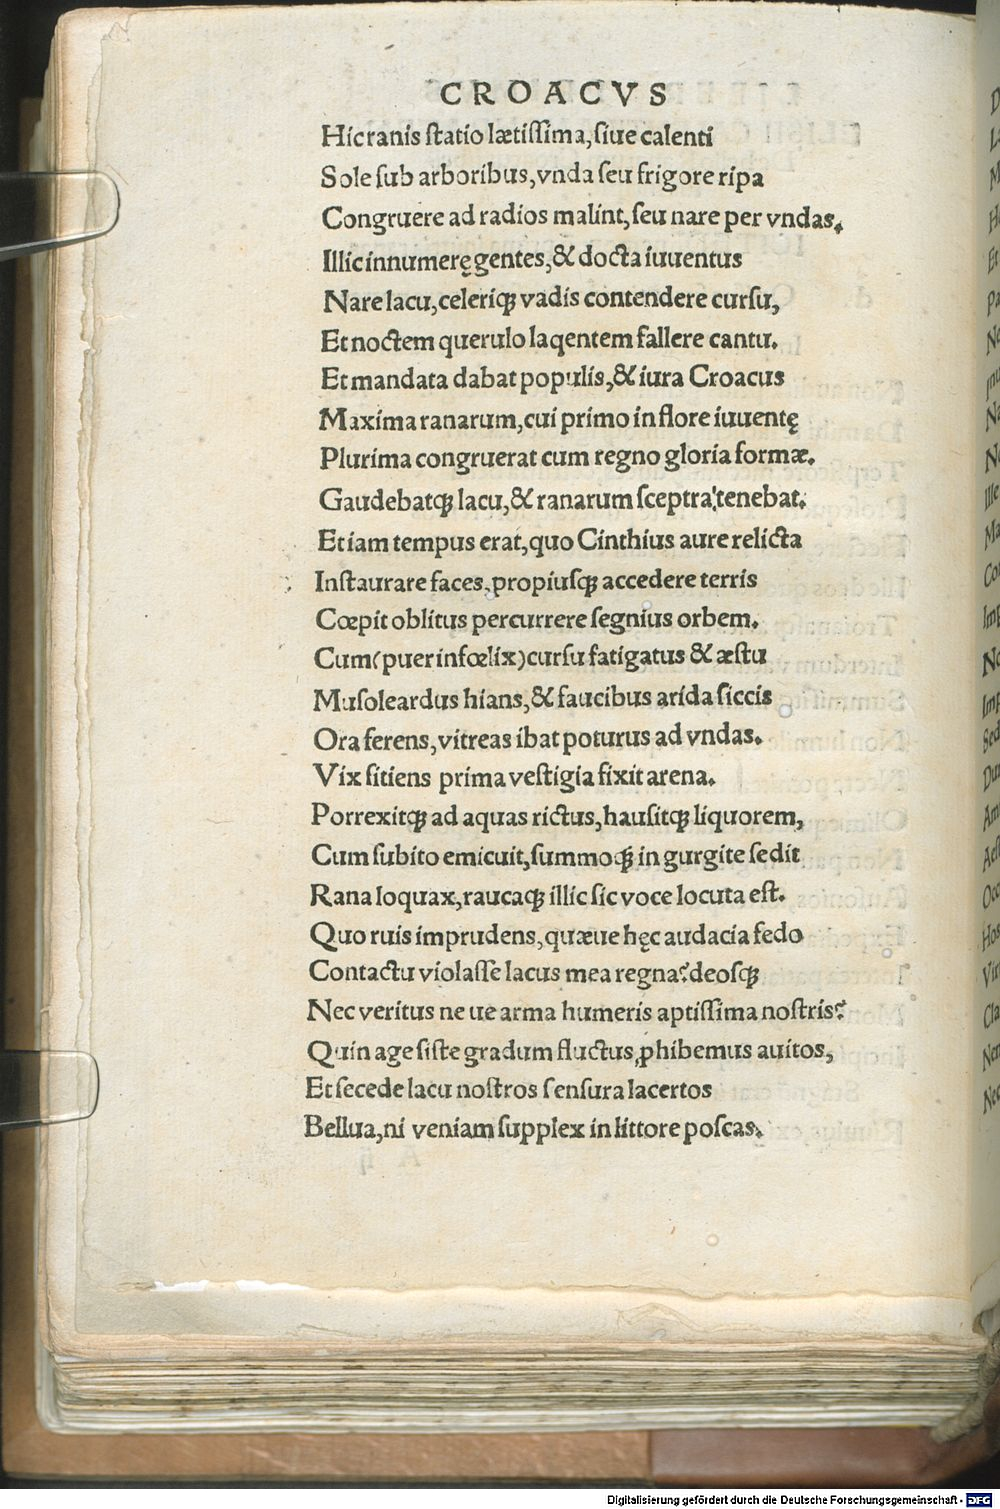 CROACVS
Hic ranis ſtatio lætiſſima, ſiue calenti
Sole ſub arboribus, vnda ſeu frigore ripa
Congruere ad radios malint, ſeu nare per vndas.
Illic innumerę gentes, & docta iuuentus
Nare lacu, celeriqꝫ vadis contendere curſu,
Et noctem querulo laqentem fallere cantu.
Et mandata dabat populis, & iura Croacus
Maxima ranarum, cui primo in flore iuuentę
Plurima congruerat cum regno gloria formæ.
Gaudebatqꝫ lacu, & ranarum ſceptra tenebat.
Et iam tempus erat, quo Cinthius aure relicta
Inſtaurare faces, propiuſqꝫ accedere terris
Cœpit oblitus percurrere ſegnius orbem.
Cum (puer infœlix) curſu fatigatus & æſtu
Muſoleardus hians, & faucibus arida ſiccis
Ora ferens, vitreas ibat poturus ad vndas.
Vix ſitiens prima veſtigia fixit arena.
Porrexitqꝫ ad aquas rictus, hauſitqꝫ liquorem,
Cum ſubito emicuit, ſummoqꝫ in gurgite ſedit
Rana loquax, raucaqꝫ illic ſic voce locuta eſt.
Quo ruis imprudens, quæue hęc audacia fedo
Contactu violaſſe lacus mea regna? deoſqꝫ
Nec veritus ne ue arma humeris aptiſſima noſtris?
Quin age ſiſte gradum fluctus, ꝓhibemus auitos,
Et ſecede lacu noſtros ſenſura lacertos
Bellua, ni veniam ſupplex in littore poſcas.
Digitalisierung gefördert durch die Deutsche Forschungsgemeinschaft - DFG